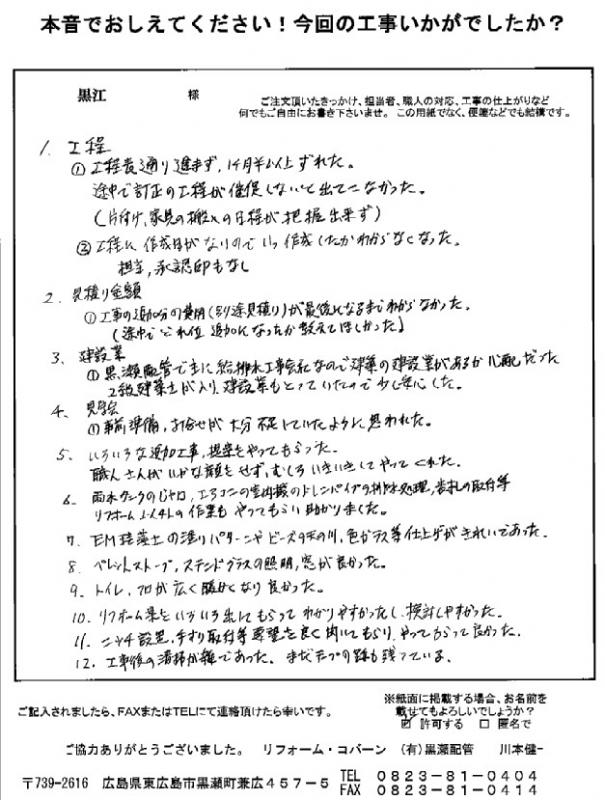 本音でおしえてください！今回の工事いかがでしたか？
黒江 様
ご注文頂いたきっかけ、担当者、職人の対応、工事の仕上がりなど
何でもご自由にお書き下さいませ。この用紙でなく、便箋などでも結構です。
1. 工程
① 工程表通り進まず、1ヶ月半以上ずれた。
途中で訂正の工程が催促しないと出てこなかった。
(片付け、家具の搬入の日程が把握出来ず)
② 工程に作成日がないのでいつ作成したかわからなくなった。
担当、承認印もなし
2. 見積り金額
① 工事の追加分の費用(別途見積り)が最後になるまでわからなかった。
(途中でどれ位追加になったか教えてほしかった)
3. 建設業
① 黒瀬配管で主に給排水工事会社なので建築の建設業があるか心配だった
2級建築士が入り、建設業もとっていたので少し安心した。
4. 見学会
① 事前準備、打合せが大分不足していたように思われた。
5. いろいろな追加工事、提案をやってもらった。
職人さんがいやな顔をせず、むしろいきいきしてやってくれた。
6. 雨水タンクのじゃ口、エアコンの室内機のドレンパイプの排水処理、表札の取付等
リフォーム以外の作業もやってもらい助かりました。
7. EM珪藻土の塗りパターンやビーズの天の川、色ガラス等仕上げがきれいであった。
8. ペレットストーブ、ステンドグラスの照明、窓が良かった。
9. トイレ、フロが広く暖かくなり良かった。
10. リフォーム案をいろいろ出してもらってわかりやすかったし、検討しやすかった。
11. ニッチ設置、手すり取付等要望を良く聞いてもらい、やってもらって良かった。
12. 工事後の清掃が雑であった。まだテープの跡も残っている。
ご記入されましたら、FAXまたはTELにて連絡頂けたら幸いです。
※紙面に掲載する場合、お名前を
載せてもよろしいでしょうか？
☑ 許可する □ 匿名で
ご協力ありがとうございました。 リフォーム・コバーン (有)黒瀬配管 川本健一
〒739-2616 広島県東広島市黒瀬町兼広457-5
TEL 0823-81-0404
FAX 0823-81-0414